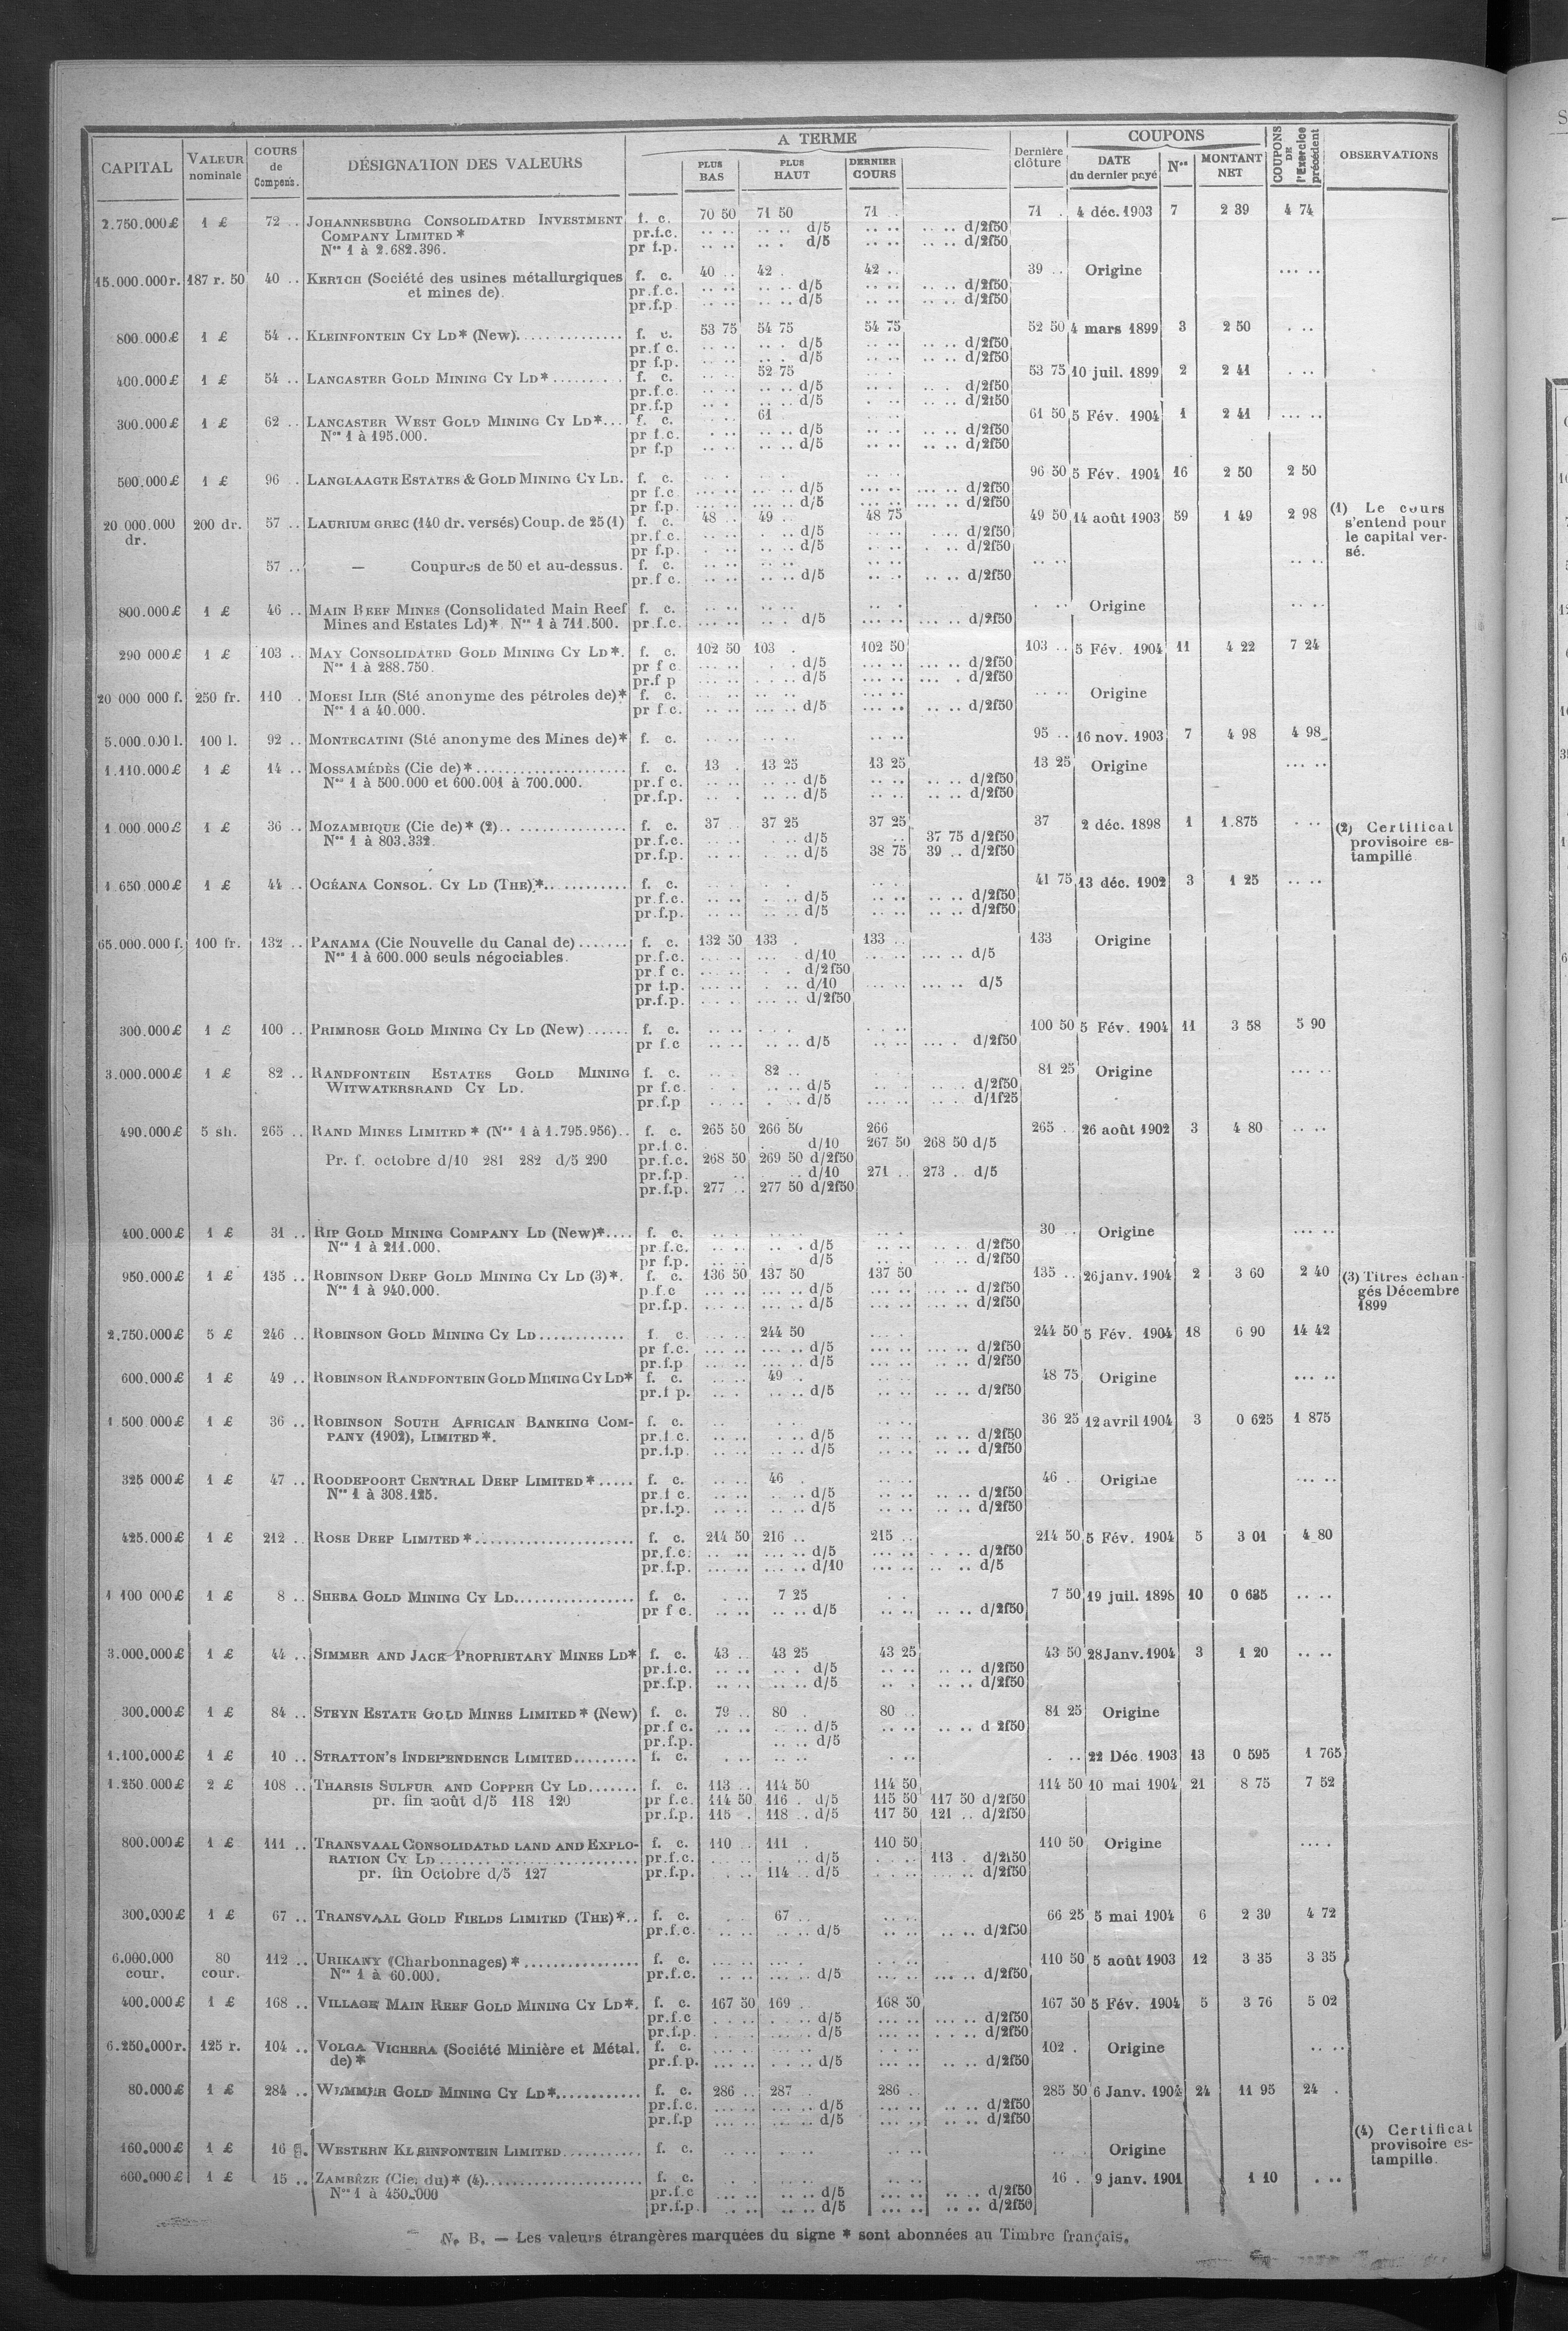 CAPITAL | VALEUR nominale | COURS de Compens. | DÉSIGNATION DES VALEURS | A TERME | PLUS BAS | PLUS HAUT | DERNIER COURS | Dernière clôture | COUPONS | DATE du dernier payé | Nos | MONTANT NET | COUPONS DE l'Exercice précédent | OBSERVATIONS
2.750.000 £ 1 £ 72 .. JOHANNESBURG CONSOLIDATED INVESTMENT f. c. 70 50 71 50 71 .. 71 . 4 déc. 1903 7 2 39 4 74
COMPANY LIMITED * pr.f.c. .. .. d/5 .. .. .. .. d/2f50
Nos 1 à 2.682.396. pr f.p. .. .. d/5 .. .. .. .. d/2f50
15.000.000 r. 187 r. 50 40 .. KERTCH (Société des usines métallurgiques f. c. 40 .. 42 . 42 .. 39 .. Origine ... ..
et mines de). pr.f.c. .. .. .. .. d/5 .. .. .. .. d/2f50
pr.f.p .. .. .. .. d/5 .. .. .. .. d/2f50
800.000 £ 1 £ 54 .. KLEINFONTEIN CY LD* (New). f. c. 53 75 54 75 54 75 52 50 4 mars 1899 3 2 50 . ..
pr.f c. .. .. .. . d/5 .. .. .. .. d/2f50
pr f.p. .. .. .. . d/5 .. .. .. .. d/2f50
400.000 £ 1 £ 54 .. LANCASTER GOLD MINING CY LD* f. c. 52 75 53 75 10 juil. 1899 2 2 41 . ..
pr.f.c. .. .. .. .. d/5 .. .. .. . d/2f50
pr.f.p .. .. .. .. d/5 . .. .. .. d/2f50
300.000 £ 1 £ 62 .. LANCASTER WEST GOLD MINING CY LD* f. c. 61 61 50 5 Fév. 1904 1 2 41 ... ..
Nos 1 à 195.000. pr f.c. . .. .. .. d/5 .. .. .. .. d/2f50
pr f.p .. .. .. .. d/5 .. .. .. .. d/2f50
500.000 £ 1 £ 96 . LANGLAAGTE ESTATES & GOLD MINING CY LD. f. c. 96 50 5 Fév. 1904 16 2 50 2 50
pr f.c ... .. ... .. d/5 ... .. ... .. d/2f50
pr f.p. ... .. ... .. d/5 ... .. ... .. d/2f50
20 000.000 dr. 200 dr. 57 .. LAURIUM GREC (140 dr. versés) Coup. de 25 (1) f. c. 48 .. 49 .. 48 75 49 50 14 août 1903 59 1 49 2 98 (1) Le cours s'entend pour le capital versé.
pr.f c. .. .. . .. d/5 .. .. .. .. d/2f50
pr f.p. . .. .. .. d/5 .. . . .. d/2f50
57 .. — Coupures de 50 et au-dessus. f. c. .. .. .. ..
pr.f c. .. .. .. .. d/5 .. .. .. .. d/2f50
800.000 £ 1 £ 46 .. MAIN REEF MINES (Consolidated Main Reef f. c. .. .. .. .. .. . . .. Origine .. ..
Mines and Estates Ld)*. Nos 1 à 711.500. pr.f.c. ... .. .. . d/5 ... .. ... .. d/2f50
290 000 £ 1 £ 103 .. MAY CONSOLIDATED GOLD MINING CY LD*. f. c. 102 50 103 . 102 50 103 .. 5 Fév. 1904 11 4 22 7 24
Nos 1 à 288.750. pr f c. ... .. . .. d/5 ... .. ... .. d/2f50
pr.f p ... .. . .. d/5 ... .. ... . d/2f50
20 000 000 f. 250 fr. 110 . MOESI ILIR (Sté anonyme des pétroles de)* f. c. .. .. .. .. ... .. .. .. Origine
Nos 1 à 40.000. pr f.c. .. .. ... .. d/5 ... .. .. .. d/2f50
5.000.000 l. 100 l. 92 .. MONTECATINI (Sté anonyme des Mines de)* f. c. 95 .. 16 nov. 1903 7 4 98 4 98
1.110.000 £ 1 £ 14 .. MOSSAMÉDÈS (Cie de)* f. c. 13 . 13 25 13 25 13 25 Origine ... ..
Nos 1 à 500.000 et 600.001 à 700.000. pr.f c. .. .. .. .. d/5 .. .. .. .. d/2f50
pr.f.p. .. . .. .. d/5 .. .. .. .. d/2f50
1.000.000 £ 1 £ 36 .. MOZAMBIQUE (Cie de)* (2) f. c. 37 . 37 25 37 25 37 2 déc. 1898 1 1.875 . .. (2) Certificat provisoire estampillé
Nos 1 à 803.332. pr.f.c. .. .. . .. d/5 .. 37 75 d/2f50
pr.f.p. .. .. . .. d/5 38 75 39 .. d/2f50
1.650.000 £ 1 £ 44 .. OCÉANA CONSOL. CY LD (THE)* f. c. 41 75 13 déc. 1902 3 1 25 .. ..
pr.f.c. .. .. . .. d/5 .. .. .. .. d/2f50
pr.f.p. .. .. .. .. d/5 .. .. .. .. d/2f50
65.000.000 f. 100 fr. 132 .. PANAMA (Cie Nouvelle du Canal de) f. c. 132 50 133 . 133 .. 133 Origine
Nos 1 à 600.000 seuls négociables. pr.f.c. ... .. ... d/10 .. .. ... .. d/5
pr.f c. ... .. . . d/2f50
pr f.p. .. .. .. .. d/10 ... .. ... .. d/5
pr.f.p. .. .. ... .. d/2f50
300.000 £ 1 £ 100 .. PRIMROSE GOLD MINING CY LD (New) f. c. 100 50 5 Fév. 1904 11 3 58 5 90
pr f.c .. .. .. .. d/5 .. .. ... . d/2f50
3.000.000 £ 1 £ 82 .. RANDFONTEIN ESTATES GOLD MINING f. c. 82 .. 81 25 Origine ... ..
WITWATERSRAND CY LD. pr f.c. .. . .. .. d/5 .. . .. .. d/2f50
pr.f.p .. .. . .. d/5 ... .. .. . d/1f25
490.000 £ 5 sh. 265 .. RAND MINES LIMITED * (Nos 1 à 1.795.956).. f. c. 265 50 266 50 266 265 .. 26 août 1902 3 4 80 .. ..
pr.f.c. d/10 267 50 268 50 d/5
Pr. f. octobre d/10 281 282 d/5 290 pr.f.c. 268 50 269 50 d/2f50
pr.f.p. .. .. d/10 271 .. 273 .. d/5
pr.f.p. 277 .. 277 50 d/2f50
400.000 £ 1 £ 31 .. RIP GOLD MINING COMPANY LD (New)*.... f. c. 30 .. Origine ... ..
Nos 1 à 211.000. pr f.c. .. .. .. . d/5 .. .. .. . d/2f50
pr f.p. d/5 .. .. .. .. d/2f50
950.000 £ 1 £ 135 .. ROBINSON DEEP GOLD MINING CY LD (3)*. f. c. 136 50 137 50 137 50 135 .. 26 janv. 1904 2 3 60 2 40 (3) Titres échangés Décembre 1899
Nos 1 à 940.000. p.f.c ... .. ... .. d/5 ... .. ... .. d/2f50
pr.f.p. ... .. ... .. d/5 ... .. ... .. d/2f50
2.750.000 £ 5 £ 246 .. ROBINSON GOLD MINING CY LD f. c. 244 50 244 50 5 Fév. 1904 18 6 90 14 42
pr f.c. ... .. ... .. d/5 ... .. ... .. d/2f50
pr.f.p ... .. ... .. d/5 ... .. ... .. d/2f50
600.000 £ 1 £ 49 .. ROBINSON RANDFONTEIN GOLD MINING CY LD* f. c. 49 . 48 75 Origine ... ..
pr.f p. .. . .. .. d/5 .. .. .. .. d/2f50
1 500.000 £ 1 £ 36 .. ROBINSON SOUTH AFRICAN BANKING COM- f. c. 36 25 12 avril 1904 3 0 625 1 875
PANY (1902), LIMITED *. pr.f.c. .. .. .. .. d/5 .. .. .. .. d/2f50
pr.f.p. .. .. .. .. d/5 .. .. .. .. d/2f50
325 000 £ 1 £ 47 .. ROODEPOORT CENTRAL DEEP LIMITED * f. c. 46 . 46 . Origine ... ..
Nos 1 à 308.125. pr f c. .. .. .. .. d/5 .. .. .. .. d/2f50
pr.f.p. .. .. .. .. d/5 .. .. .. .. d/2f50
425.000 £ 1 £ 212 .. ROSE DEEP LIMITED * f. c. 214 50 216 .. 215 .. 214 50 5 Fév. 1904 5 3 01 4 80
pr.f.c. .. .. ... .. d/5 ... .. . .. d/2f50
pr.f.p. ... .. ... .. d/10 ... .. .. .. d/5
1 100 000 £ 1 £ 8 .. SHEBA GOLD MINING CY LD f. c. 7 25 7 50 19 juil. 1898 10 0 625 .. ..
pr f c. .. .. .. .. d/5 .. .. .. .. d/2f50
3.000.000 £ 1 £ 44 .. SIMMER AND JACK PROPRIETARY MINES LD* f. c. 43 .. 43 25 43 25 43 50 28 Janv. 1904 3 1 20 .. ..
pr.f.c. .. .. .. . d/5 .. .. .. .. d/2f50
pr.f.p. .. .. .. .. d/5 .. . .. .. d/2f50
300.000 £ 1 £ 84 .. STEYN ESTATE GOLD MINES LIMITED * (New) f. c. 79 .. 80 . 80 .. 81 25 Origine
pr.f c. .. .. .. .. d/5 .. .. .. .. d 2f50
pr.f.p. .. .. d/5
1.100.000 £ 1 £ 10 .. STRATTON'S INDEPENDENCE LIMITED f. c. . .. 22 Déc. 1903 13 0 595 1 765
1.250.000 £ 2 £ 108 .. THARSIS SULFUR AND COPPER CY LD f. c. 113 .. 114 50 114 50 114 50 10 mai 1904 21 8 75 7 52
pr. fin août d/5 118 120 pr f.c. 114 50 116 . d/5 115 50 117 50 d/2f50
pr.f.p. 115 . 118 .. d/5 117 50 121 .. d/2f50
800.000 £ 1 £ 111 .. TRANSVAAL CONSOLIDATED LAND AND EXPLO- f. c. 110 .. 111 . 110 50 110 50 Origine ... .
RATION CY LD pr.f.c. .. .. d/5 . .. 113 . d/2f50
pr. fin Octobre d/5 127 pr.f.p. . .. 114 .. d/5 . .. .. .. d/2f50
300.000 £ 1 £ 67 .. TRANSVAAL GOLD FIELDS LIMITED (THE)*.. f. c. 67 .. 66 25 5 mai 1904 6 2 39 4 72
pr.f.c. .. .. .. .. d/5 .. .. .. .. d/2f50
6.000.000 cour. 80 cour. 112 .. URIKANY (Charbonnages)* f. c. 110 50 5 août 1903 12 3 35 3 35
Nos 1 à 60.000. pr.f.c. .. .. ... .. d/5 .. .. ... .. d/2f50
400.000 £ 1 £ 168 .. VILLAGE MAIN REEF GOLD MINING CY LD*. f. c. 167 50 169 .. 168 50 167 50 5 Fév. 1904 5 3 76 5 02
pr.f.c . .. . .. d/5 ... .. ... .. d/2f50
pr.f.p. . .. . .. d/5 ... .. . .. d/2f50
6.250.000 r. 125 r. 104 .. VOLGA VICHERA (Société Minière et Métal. f. c. 102 . Origine .. ..
de)* pr.f.p. ... .. . .. d/5 ... .. .. .. d/2f50
80.000 £ 1 £ 284 .. WEMMER GOLD MINING CY LD* f. c. 286 .. 287 . 286 .. 285 50 6 Janv. 1904 24 11 95 24 .
pr.f.c. ... .. ... .. d/5 ... .. .. .. d/2f50
pr.f.p ... .. ... .. d/5 ... .. .. .. d/2f50
160.000 £ 1 £ 16 . WESTERN KLEINFONTEIN LIMITED f. c. Origine (4) Certificat provisoire estampille.
600.000 £ 1 £ 15 .. ZAMBÈZE (Cie du)* (4) f. c. 16 . 9 janv. 1901 1 10 . ..
Nos 1 à 450.000 pr.f.c ... .. .. .. d/5 ... .. .. .. d/2f50
pr.f.p. .. .. .. .. d/5 ... .. .. .. d/2f50
N. B. — Les valeurs étrangères marquées du signe * sont abonnées au Timbre français.